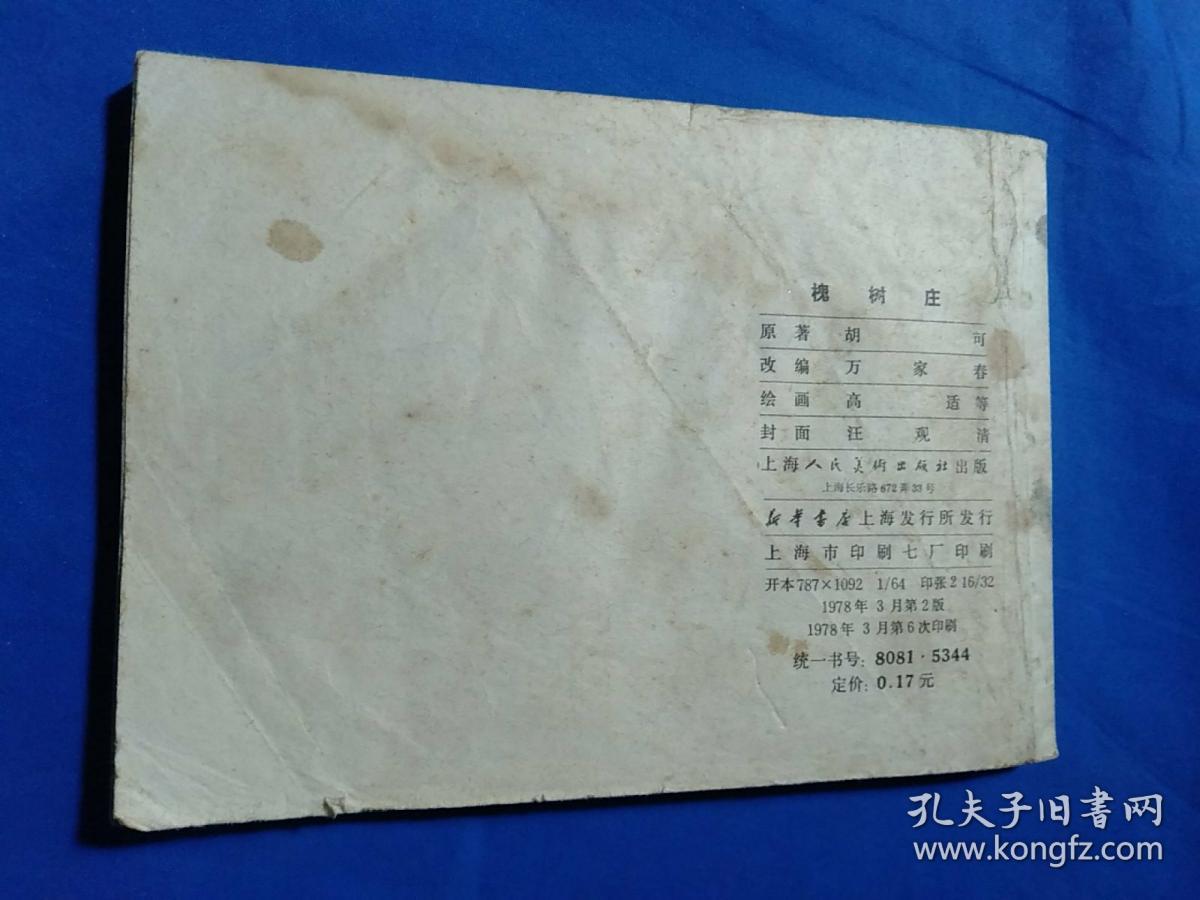 槐树庄
原著 胡可
改编 万家春
绘画 高适等
封面 汪观清
上海人民美術出版社出版
上海长乐路672弄33号
新华书店上海发行所发行
上海市印刷七厂印刷
开本787×1092 1/64 印张2 16/32
1978年 3月第2版
1978年 3月第6次印刷
统一书号: 8081·5344
定价: 0.17元
孔夫子旧書网
www.kongfz.com